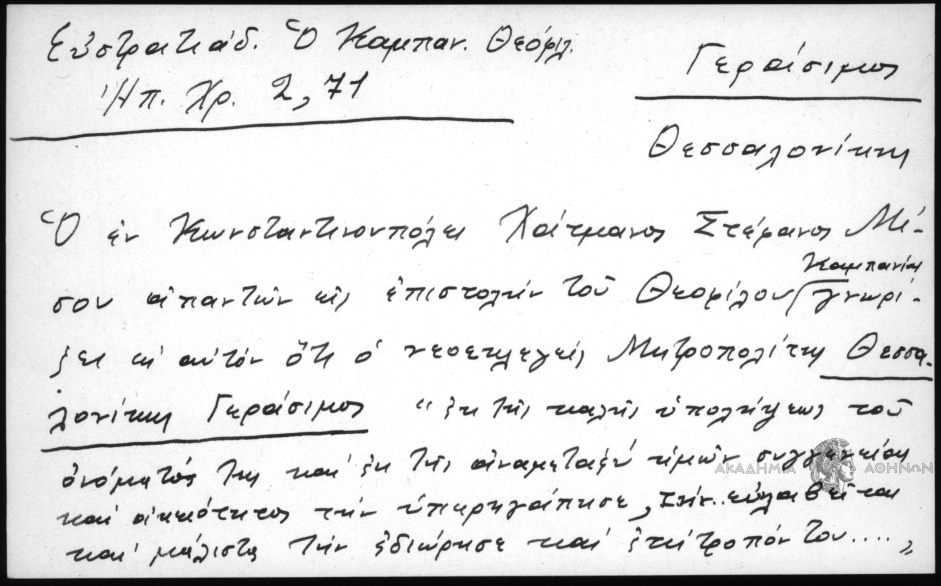 Εὐστρατιάδ. Ὁ Καμπαν. Θεόφιλ.
Ἠπ. Χρ. 2, 71
Γεράσιμος
Θεσσαλονίκης
Ὁ ἐν Κωνσταντινουπόλει Χάτμανος Στέφανος Μί-
σου ἀπαντῶν εἰς ἐπιστολὴν τοῦ Θεοφίλου Καμπανίας γνωρί-
ζει εἰς αὐτὸν ὅτι ὁ νεοεκλεγεὶς Μητροπολίτης Θεσσα-
λονίκης Γεράσιμος "ἐκ τῆς καλῆς ὑπολήψεως τοῦ
ὀνόματός της καὶ ἐκ τῆς ἀναμεταξὺ ἡμῶν συγγενείας
καὶ οἰκειότητος τὴν ὑπερηγάπησε, τὴν.. εὐλαβεῖται
καὶ μάλιστα τὴν ἐδιώρησε καὶ ἐπίτροπόν του....„
ΑΚΑΔΗΜΙΑ ΑΘΗΝΩΝ